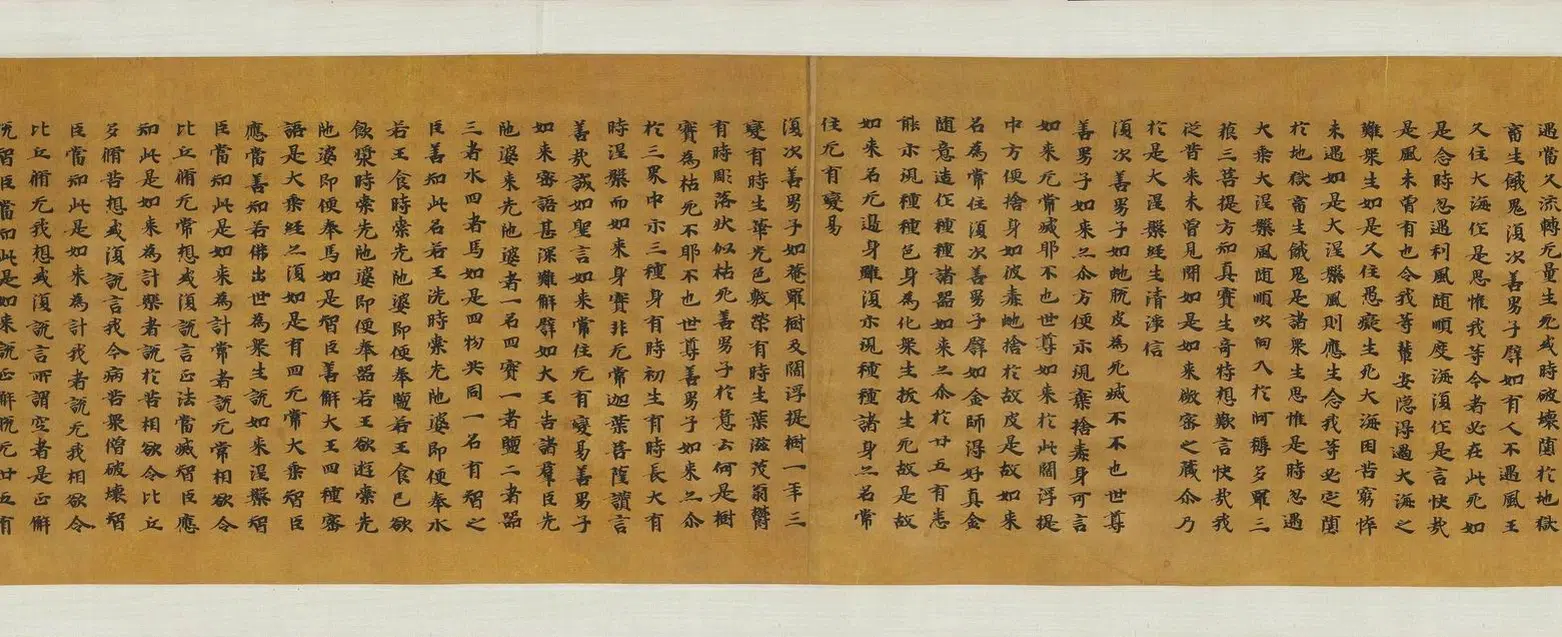 遇當久流轉无量生死或時破壞墮於地獄
畜生餓鬼復次善男子譬如有人不遇風王
久住大海作是思惟我等今者必在此死如
是念時忽遇利風随順度海復作是言快哉
是風未曾有也令我等輩安隱得過大海之
難衆生如是久住愚癡生死大海困苦窮悴
未遇如是大涅槃風則應生念我等必定墮
於地獄畜生餓鬼是諸衆生思惟是時忽遇
大乘大涅槃風随順吹向入於阿耨多羅三
藐三菩提方知真實生奇特想歎言快哉我
從昔來未曾見聞如是如來微密之藏尒乃
於是大涅槃經生清淨信
復次善男子如虵脫皮為死滅不不也世尊
善男子如來亦尒方便示現棄捨毒身可言
如來无常滅耶不也世尊如來於此閻浮提
中方便捨身如彼毒虵捨於故皮是故如來
名為常住復次善男子譬如金師得好真金
随意造作種種諸器如來亦尒於廿五有悉
能示現種種色身為化衆生拔生死故是故
如來名无邊身雖復示現種種諸身亦名常
住无有變易
復次善男子如菴羅樹及閻浮提樹一年三
變有時生華光色敷榮有時生葉滋茂蓊鬱
有時彫落狀似枯死善男子於意云何是樹
實為枯死不耶不也世尊善男子如來亦尒
於三界中示三種身有時初生有時長大有
時涅槃而如來身實非无常迦葉菩薩讚言
善哉誠如聖言如來常住无有變易善男子
如來密語甚深難解譬如大王告諸羣臣先
陁婆來先陁婆者一名四實一者鹽二者器
三者水四者馬如是四物共同一名有智之
臣善知此名若王洗時索先陁婆即便奉水
若王食時索先陁婆即便奉鹽若王食已欲
飲漿時索先陁婆即便奉器若王欲遊索先
陁婆即便奉馬如是智臣善解大王四種密
語是大乘經亦復如是有四无常大乘智臣
應當善知若佛出世為衆生說如來涅槃智
臣當知此是如來為計常者說无常相欲令
比丘脩无常想或復說言正法當滅智臣應
知此是如來為計樂者說於苦相欲令比丘
多脩苦想或復說言我今病苦衆僧破壞智
臣當知此是如來為計我者說无我相欲令
比丘脩无我想或復說言所謂空者是正解
脫智臣當知此是如來說正解脫无廿五有